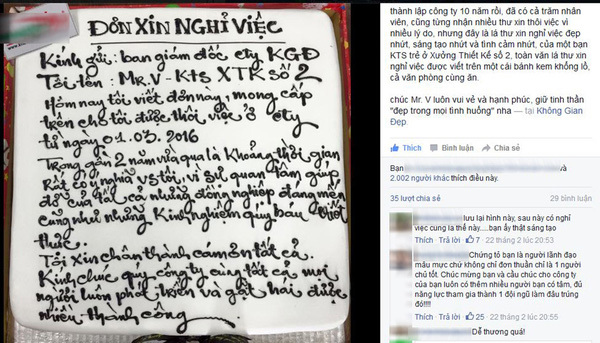 ĐƠN XIN NGHỈ VIỆC
Kính gửi: ban giám đốc cty KGĐ
Tôi tên: Mr.V - KTS XTK số 2
Hôm nay tôi viết đơn này, mong cấp
trên cho tôi được thôi việc ở cty
từ ngày 01.03.2016
Trong gần 2 năm vừa qua là khoảng thời gian
Rất có ý nghĩa với tôi, vì sự quan tâm giúp
đỡ của tất cả những đồng nghiệp đáng mến
cũng như những kinh nghiệm quý báu
thức.
Tôi xin chân thành cám ơn tất cả.
Kính chúc quý công ty cùng tất cả mọi
người luôn phát triển và gặt hái được
nhiều thành công
thành lập công ty 10 năm rồi, đã có cả trăm nhân
viên, cũng từng nhận nhiều thư xin thôi việc vì
nhiều lý do, nhưng đây là lá thư xin nghỉ việc đẹp
nhứt, sáng tạo nhứt và tình cảm nhứt, của một bạn
KTS trẻ ở Xưởng Thiết Kế số 2, toàn văn lá thư xin
nghỉ việc được viết trên một cái bánh kem khổng lồ,
cả văn phòng cùng ăn.
chúc Mr. V luôn vui vẻ và hạnh phúc, giữ tinh thần
"đẹp trong mọi tình huống" nha — tại Không Gian
Đẹp.
Thích Bình luận Chia sẻ
Bạn và
2.002 người khác thích điều này.
35 lượt chia sẻ 29 bình luận
lưu lại hình này, sau này có nghỉ
việc cung la thế này.....bạn ấy thật sáng tạo
Thích · Trả lời · 7 · 22 tháng 2 lúc 20:53
Chứng tỏ bạn là người lãnh đạo
mẫu mực chứ không chỉ đơn thuần chỉ là 1 người
chủ tốt. Chúc mừng bạn và cầu chúc cho công ty
của bạn luôn có thêm nhiều người bạn có tâm, đủ
năng lực tham gia thành 1 đội ngũ làm đâu trúng
đó!!!!
Thích · Trả lời · 25 · 22 tháng 2 lúc 22:55
Dễ thương quá!